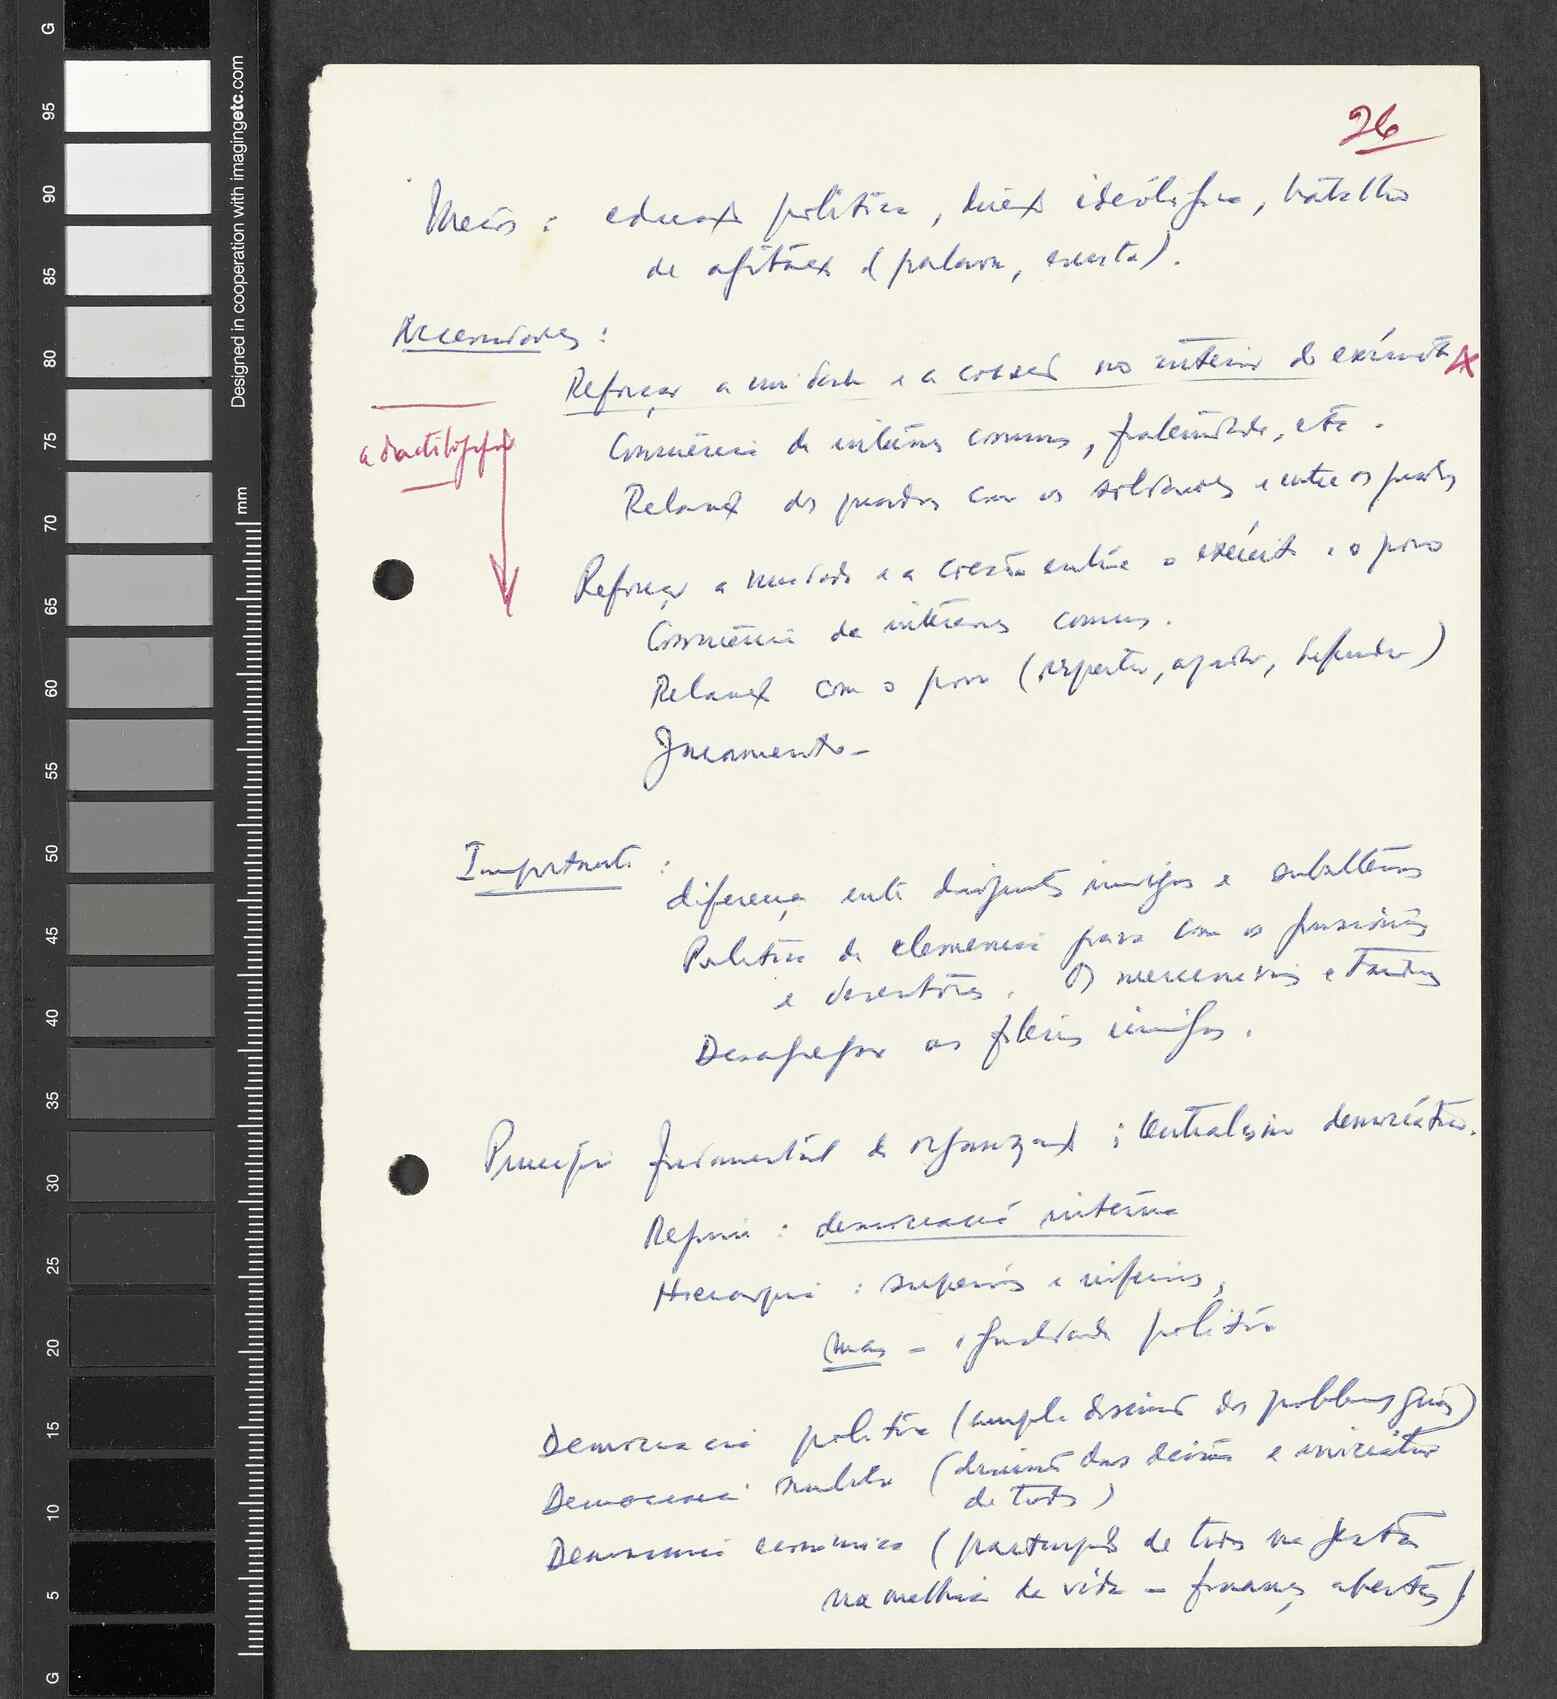 26
Meios : educax política, direx ideológica, batalha
de agitaçx (palavra, escrita).
Necessidades :
Reforçar a unidade e a coesão no interior do exército
a dactilografar
Consciência de interesses comuns, fraternidade, etc.
Relaçx dos quadros com os soldados e entre os quadros
Reforçar a unidade e a coesão entre o exército e o povo
Consciência de interesses comuns.
Relaçx com o povo (respeitar, ajudar, defender)
Juramento -
Importante :
diferença entre dirigentes inimigos e subalternos
Política de clemência para com os prisioneiros
e desertores. Os mercenários e
Desagregar as fileiras inimigas.
Princípio fundamental de organizax : Centralismo democrático.
Regime : democracia interna
Hierarquia : superiores e inferiores,
mas - igualdade política
Democracia política (ampla discussão dos problemas gerais)
Democracia militar (discussão das decisões e iniciativa
de todos)
Democracia económica (participação de todos na gestão
na melhoria da vida - finanças abertas)
G
95
90
85
80
75
70
65
60
55
50
45
40
35
30
25
20
15
10
5
G
Designed in cooperation with imagingetc.com
mm